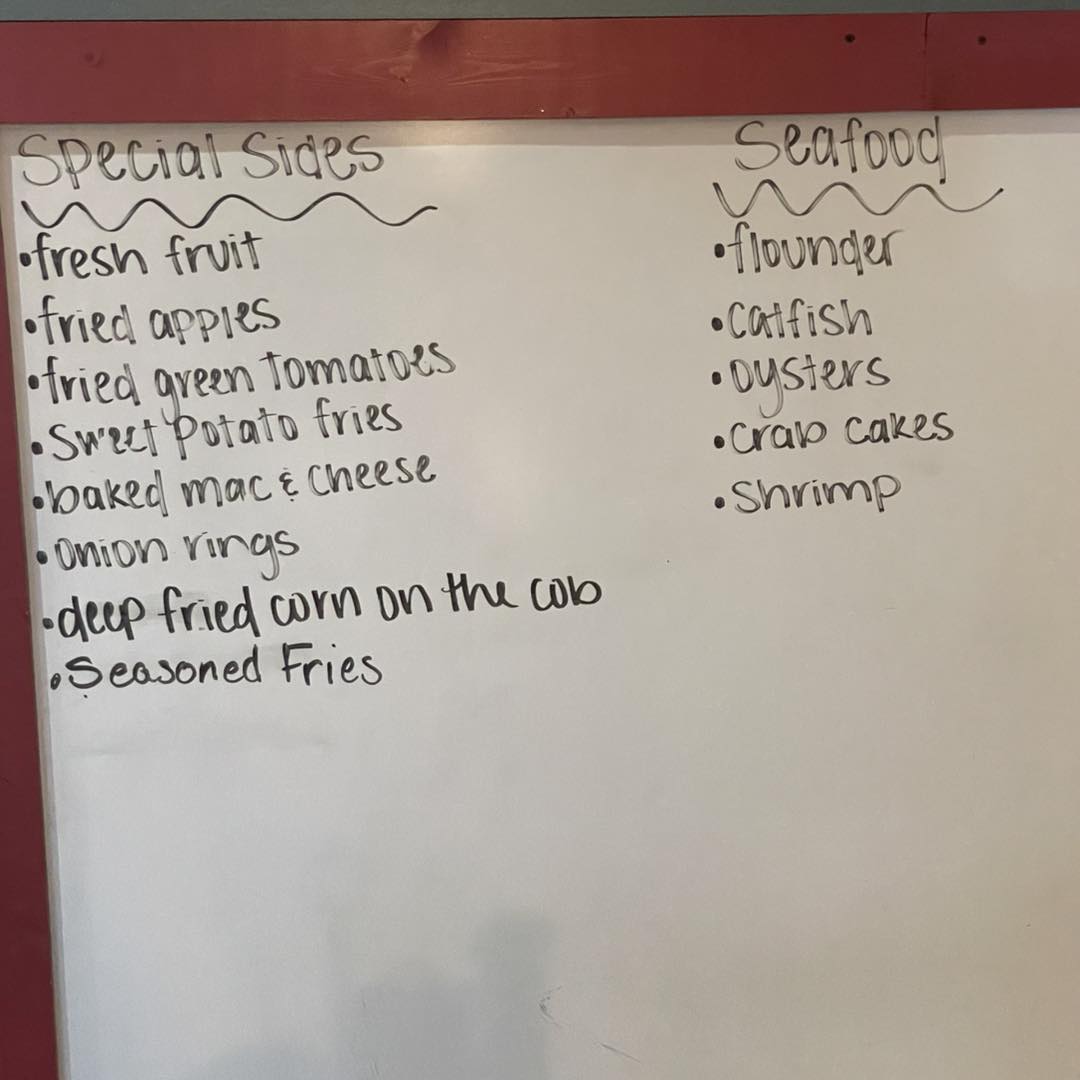 Special Sides
•fresh fruit
•fried apples
•fried green tomatoes
•Sweet Potato fries
•baked mac & cheese
•onion rings
•deep fried corn on the cob
•Seasoned Fries
Seafood
•flounder
•catfish
•oysters
•crab cakes
•Shrimp